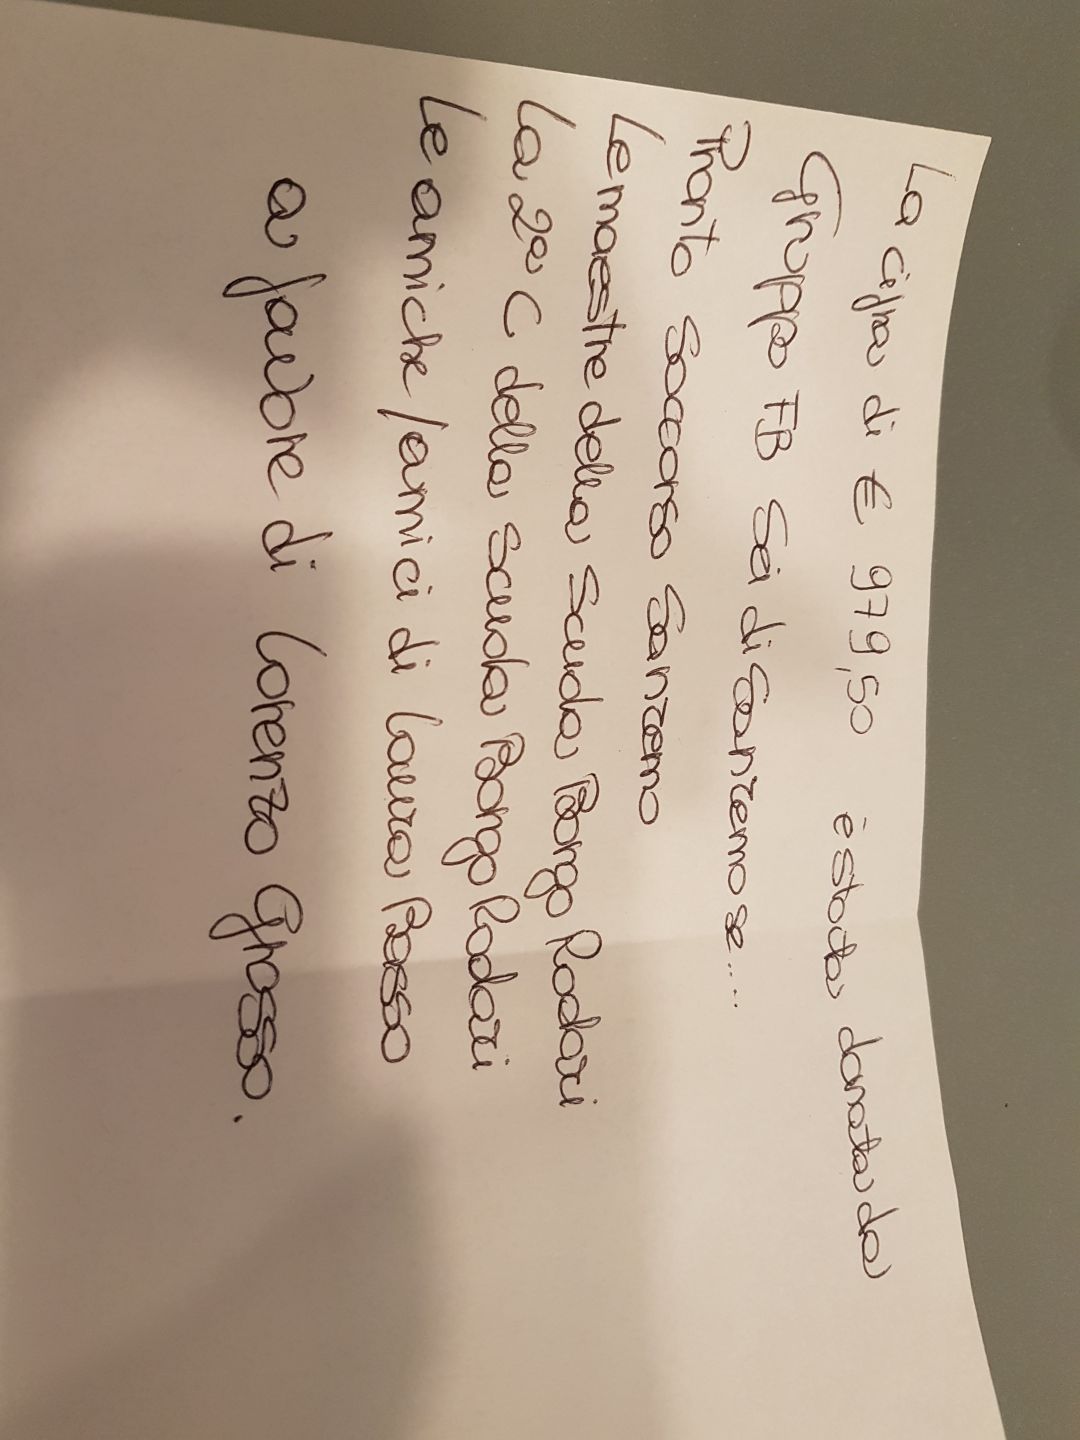 La cifra di € 979,50 è stata donata da
Gruppo FB Sei di Sanremo se.....
Pronto Soccorso Sanremo
Le maestre della Scuola Borgo Rodari
La 2a C della scuola Borgo Rodari
Le amiche/amici di Laura Basso
a favore di Lorenzo Grosso.